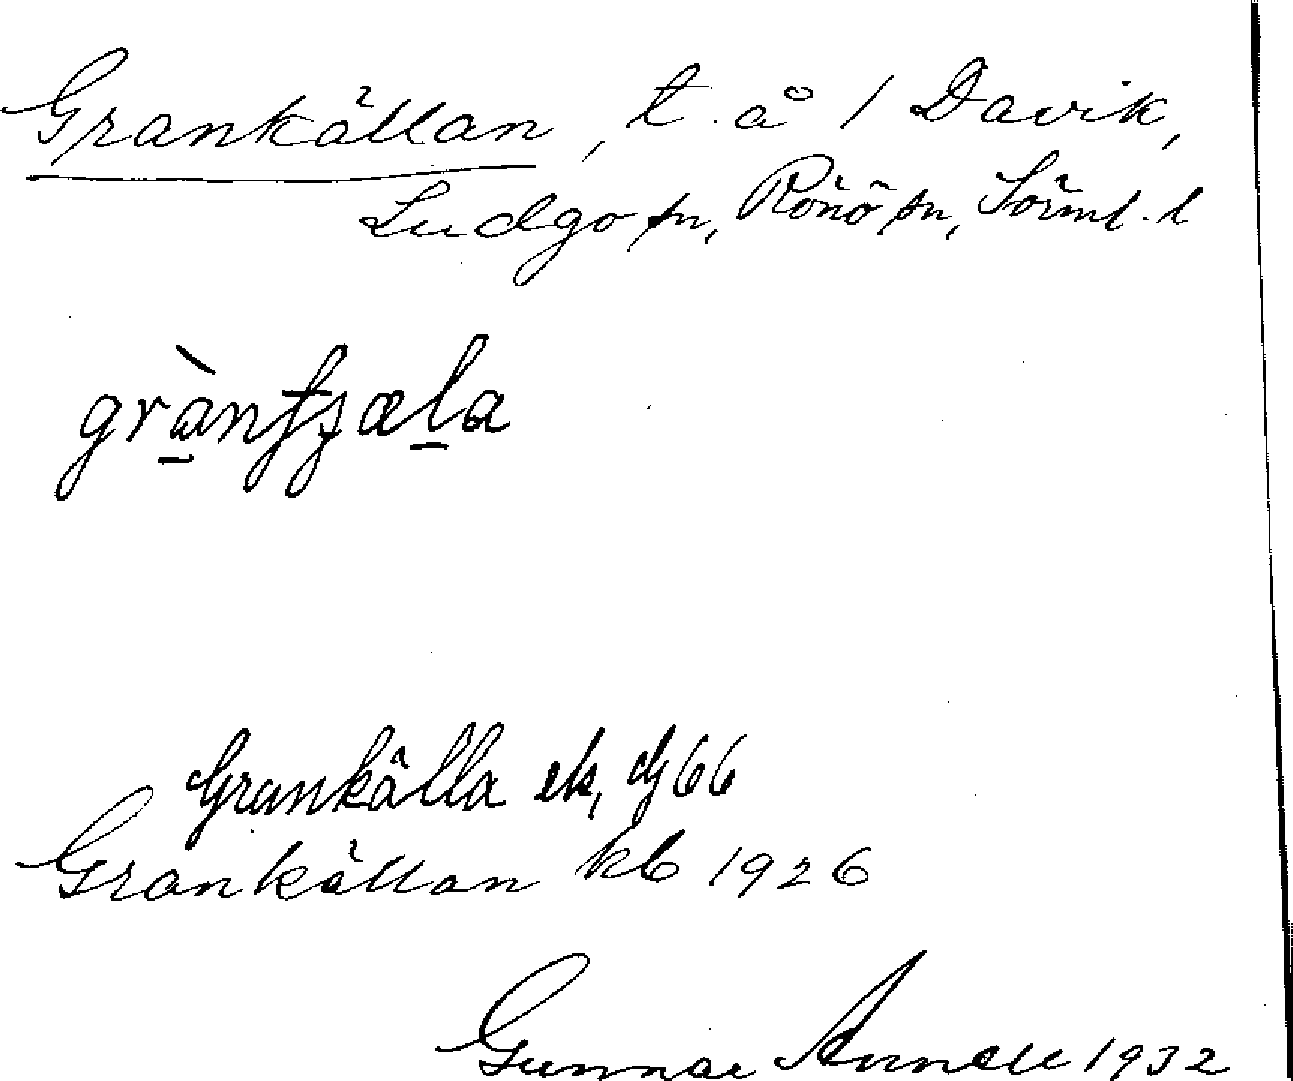 Grankällan, t. å 1 Davik,
Ludgo sn, Rönö sn, Sörml. l
gràntʃæla
Grankälla ek, dj 66
Grankällan kb 1926
Gunnar 1932